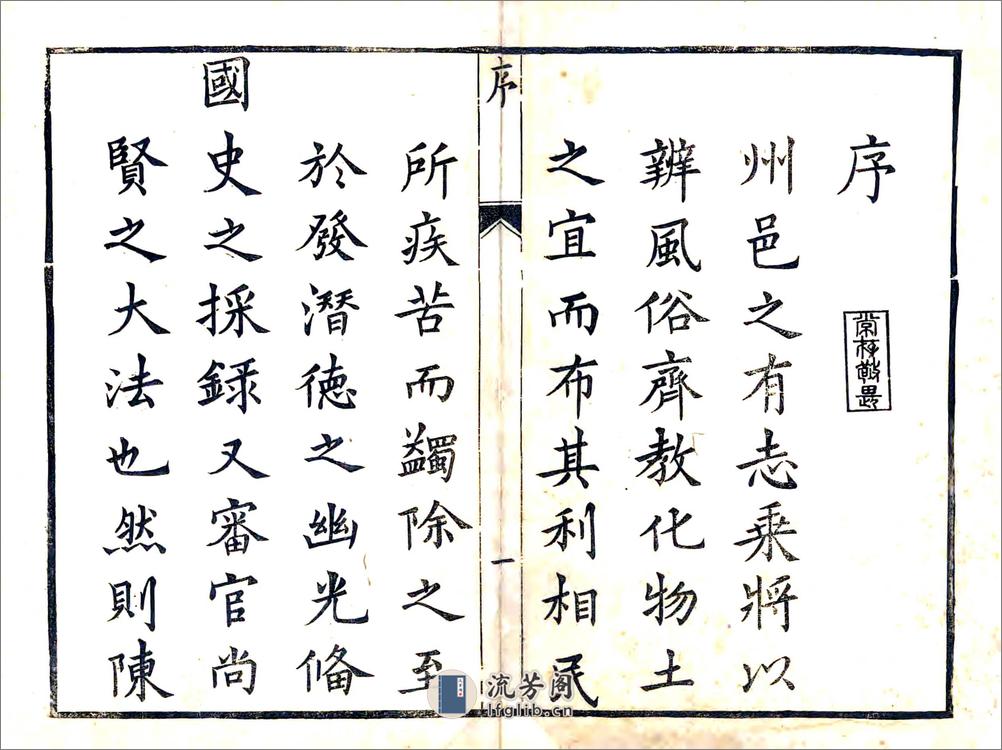 序
常存敬畏
州邑之有志乗將以
辨風俗齊教化物土
之宜而布其利相民
序 一
所疾苦而蠲除之至
於發潛徳之幽光俻
國史之採録又審官尚
賢之大法也然則陳
流芳阁
lfglib.cn